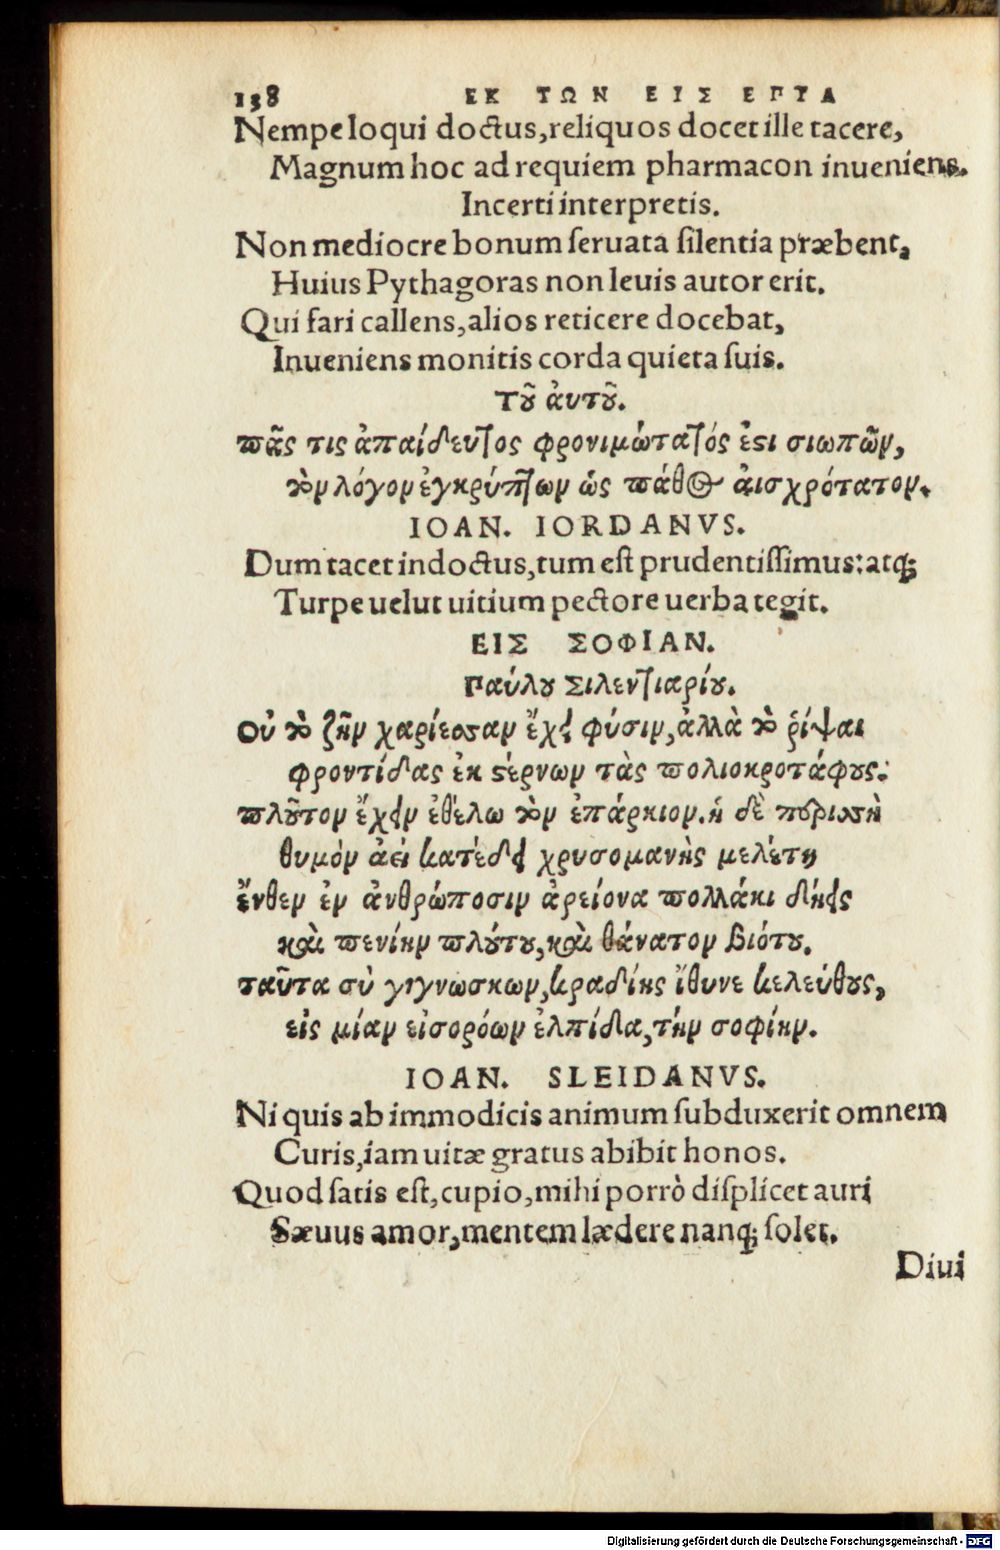 138 ΕΚ ΤΩΝ ΕΙΣ ΕΠΤΑ
Nempe loqui doctus, reliquos docet ille tacere,
Magnum hoc ad requiem pharmacon inueniens.
Incerti interpretis.
Non mediocre bonum seruata silentia præbent,
Huius Pythagoras non leuis autor erit.
Qui fari callens, alios reticere docebat,
Inueniens monitis corda quieta suis.
Τοῦ ἀυτοῦ.
πᾶς τις ἀπαίδευτος φρονιμώτατός ἐστι σιωπῶν,
τὸν λόγον ἐγκρύπτων ὡς πάθος ἀισχρότατον.
IOAN. IORDANVS.
Dum tacet indoctus, tum est prudentissimus: atq;
Turpe uelut uitium pectore uerba tegit.
ΕΙΣ ΣΟΦΙΑΝ.
Παύλου Σιλεντιαρίου.
Οὐ τὸ ζῆν χαρίεσσαν ἔχει φύσιν, ἀλλὰ τὸ ῥίψαι
φροντίδας ἐκ στέρνων τὰς πολιοκροτάφους:
πλοῦτον ἔχειν ἐθέλω τὸν ἐπάρκιον. ἡ δὲ περισσὴ
θυμὸν ἀεὶ κατέδει χρυσομανὴς μελέτη
ἔνθεν ἐν ἀνθρώποσιν ἀρείονα πολλάκι δήεις
καὶ πενίην πλούτου, καὶ θάνατον βιότου.
ταῦτα σὺ γιγνώσκων, κραδίης ἴθυνε κελεύθους,
εἰς μίαν εἰσορόων ἐλπίδα, τὴν σοφίην.
IOAN. SLEIDANVS.
Ni quis ab immodicis animum subduxerit omnem
Curis, iam uitæ gratus abibit honos.
Quod satis est, cupio, mihi porrò displicet auri
Sæuus amor, mentem lædere nanq; solet.
Diui
Digitalisierung gefördert durch die Deutsche Forschungsgemeinschaft - DFG